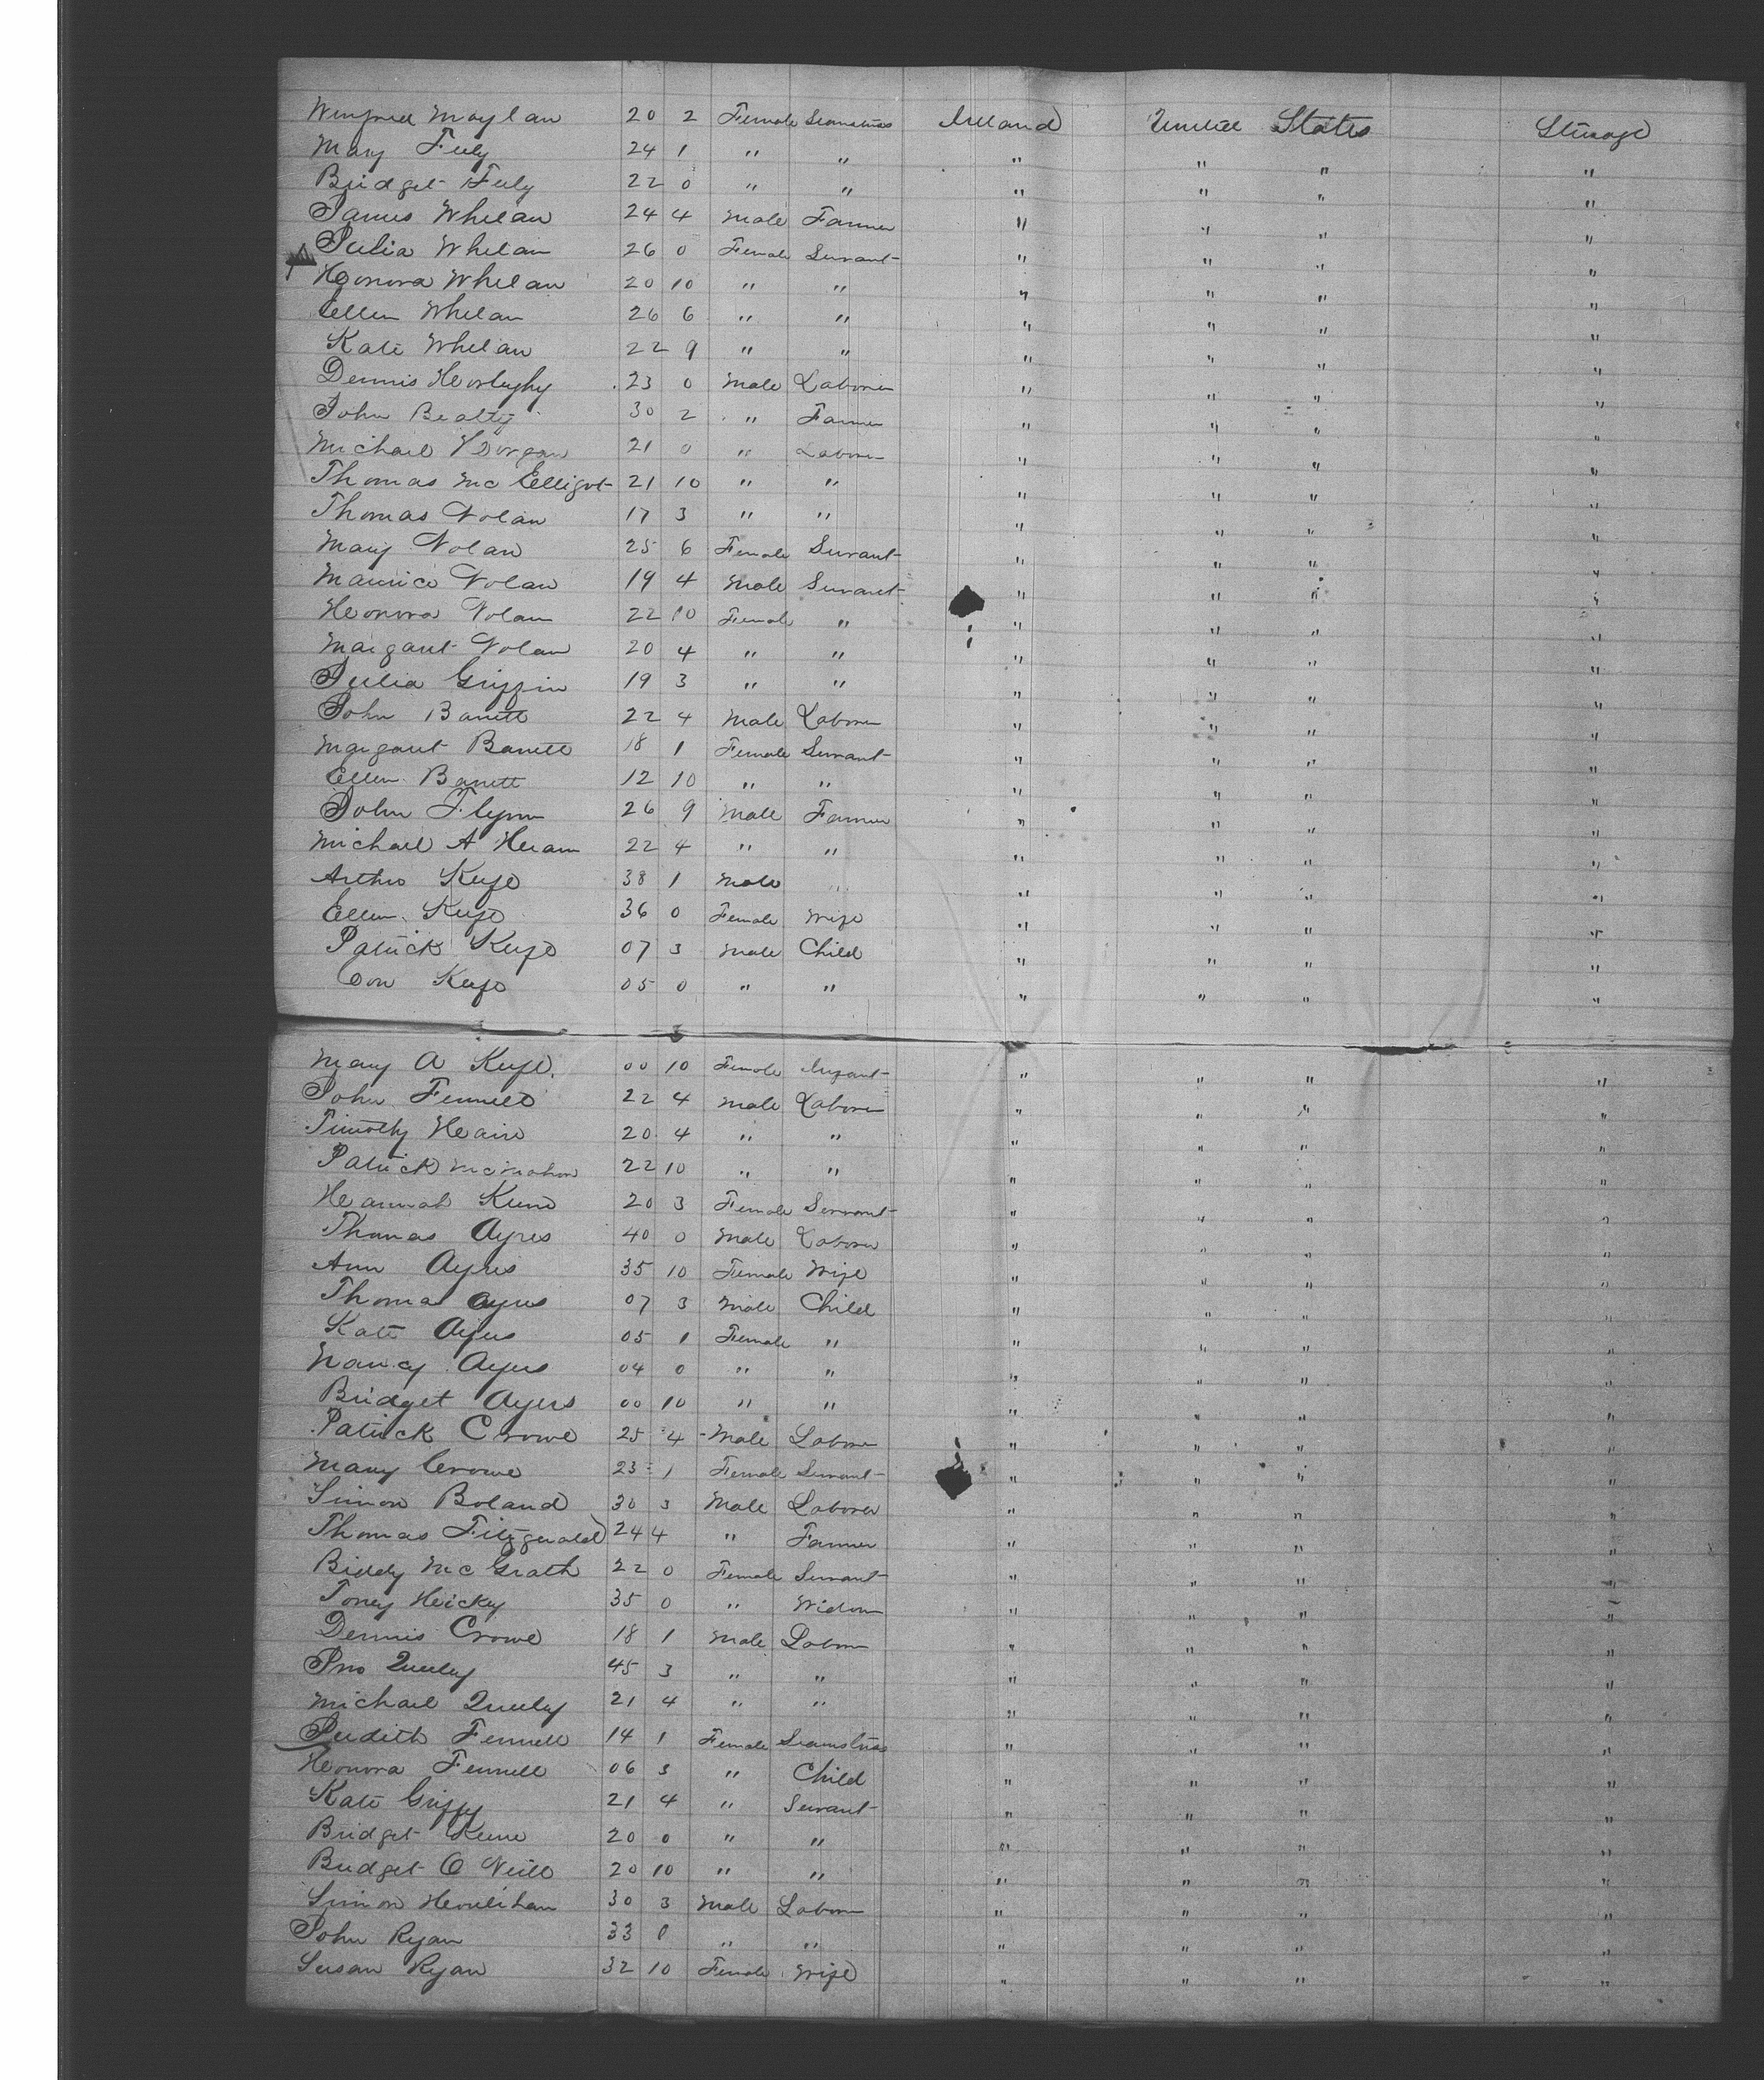 Winifred Moylan 20 2 Female Seamstress Ireland United States Steerage
Mary Feely 24 1 " " " " " "
Bridget Feely 22 0 " " " " " "
James Whelan 24 4 Male Farmer " " " "
Julia Whelan 26 0 Female Servant " " " "
Honora Whelan 20 10 " " " " " "
Ellen Whelan 26 6 " " " " " "
Kate Whelan 22 9 " " " " " "
Dennis 23 0 Male Laborer " " " "
John Bealty 30 2 " Farmer " " " "
Michael 21 0 " Laborer " " " "
Thomas Mc Elligot 21 10 " " " " " "
Thomas Nolan 17 3 " " " " " "
Mary Nolan 25 6 Female Servant " " " "
Maurice Nolan 19 4 Male Servant " " " "
Honora Nolan 22 10 Female " " " " "
Margaret Nolan 20 4 " " " " " "
Julia Griffin 19 3 " " " " " "
John Barrett 22 4 Male Laborer " " " "
Margaret Barrett 18 1 Female Servant " " " "
Ellen Barrett 12 10 " " " " " "
John Flynn 26 9 Male Farmer " " " "
Michael A 22 4 " " " " " "
Arthur Keefe 38 1 Male " " " " "
Ellen Keefe 36 0 Female Wife " " " "
Patrick Keefe 07 3 Male Child " " " "
Con Keefe 05 0 " " " " " "
Mary A Keefe 00 10 Female Infant " " " "
John Fennell 22 4 Male Laborer " " " "
Timothy 20 4 " " " " " "
Patrick McMahon 22 10 " " " " " "
Hannah Keane 20 3 Female Servant " " " "
Thomas Ayres 40 0 Male Laborer " " " "
Ann Ayres 35 10 Female Wife " " " "
Thomas Ayres 07 3 Male Child " " " "
Kate Ayres 05 1 Female " " " " "
Nancy Ayers 04 0 " " " " " "
Bridget Ayers 00 10 " " " " " "
Patrick Crowe 25 4 Male Laborer " " " "
Mary Crowe 23 1 Female Servant " " " "
Simon Boland 30 3 Male Laborer " " " "
Thomas Fitzgerald 24 4 " Farmer " " " "
Biddy Mc Grath 22 0 Female Servant " " " "
Toney Hickey 35 0 " Widow " " " "
Dennis Crowe 18 1 Male Laborer " " " "
Jno Queely 45 3 " " " " " "
Michael Queely 21 4 " " " " " "
Judith Fennell 14 1 Female Seamstress " " " "
Honora Fennell 06 3 " Child " " " "
Kate Griffy 21 4 " Servant " " " "
Bridget Keane 20 0 " " " " " "
Bridget O Neill 20 10 " " " " " "
Simon Houlihan 30 3 Male Laborer " " " "
John Ryan 33 0 " " " " " "
Susan Ryan 32 10 Female Wife " " " "